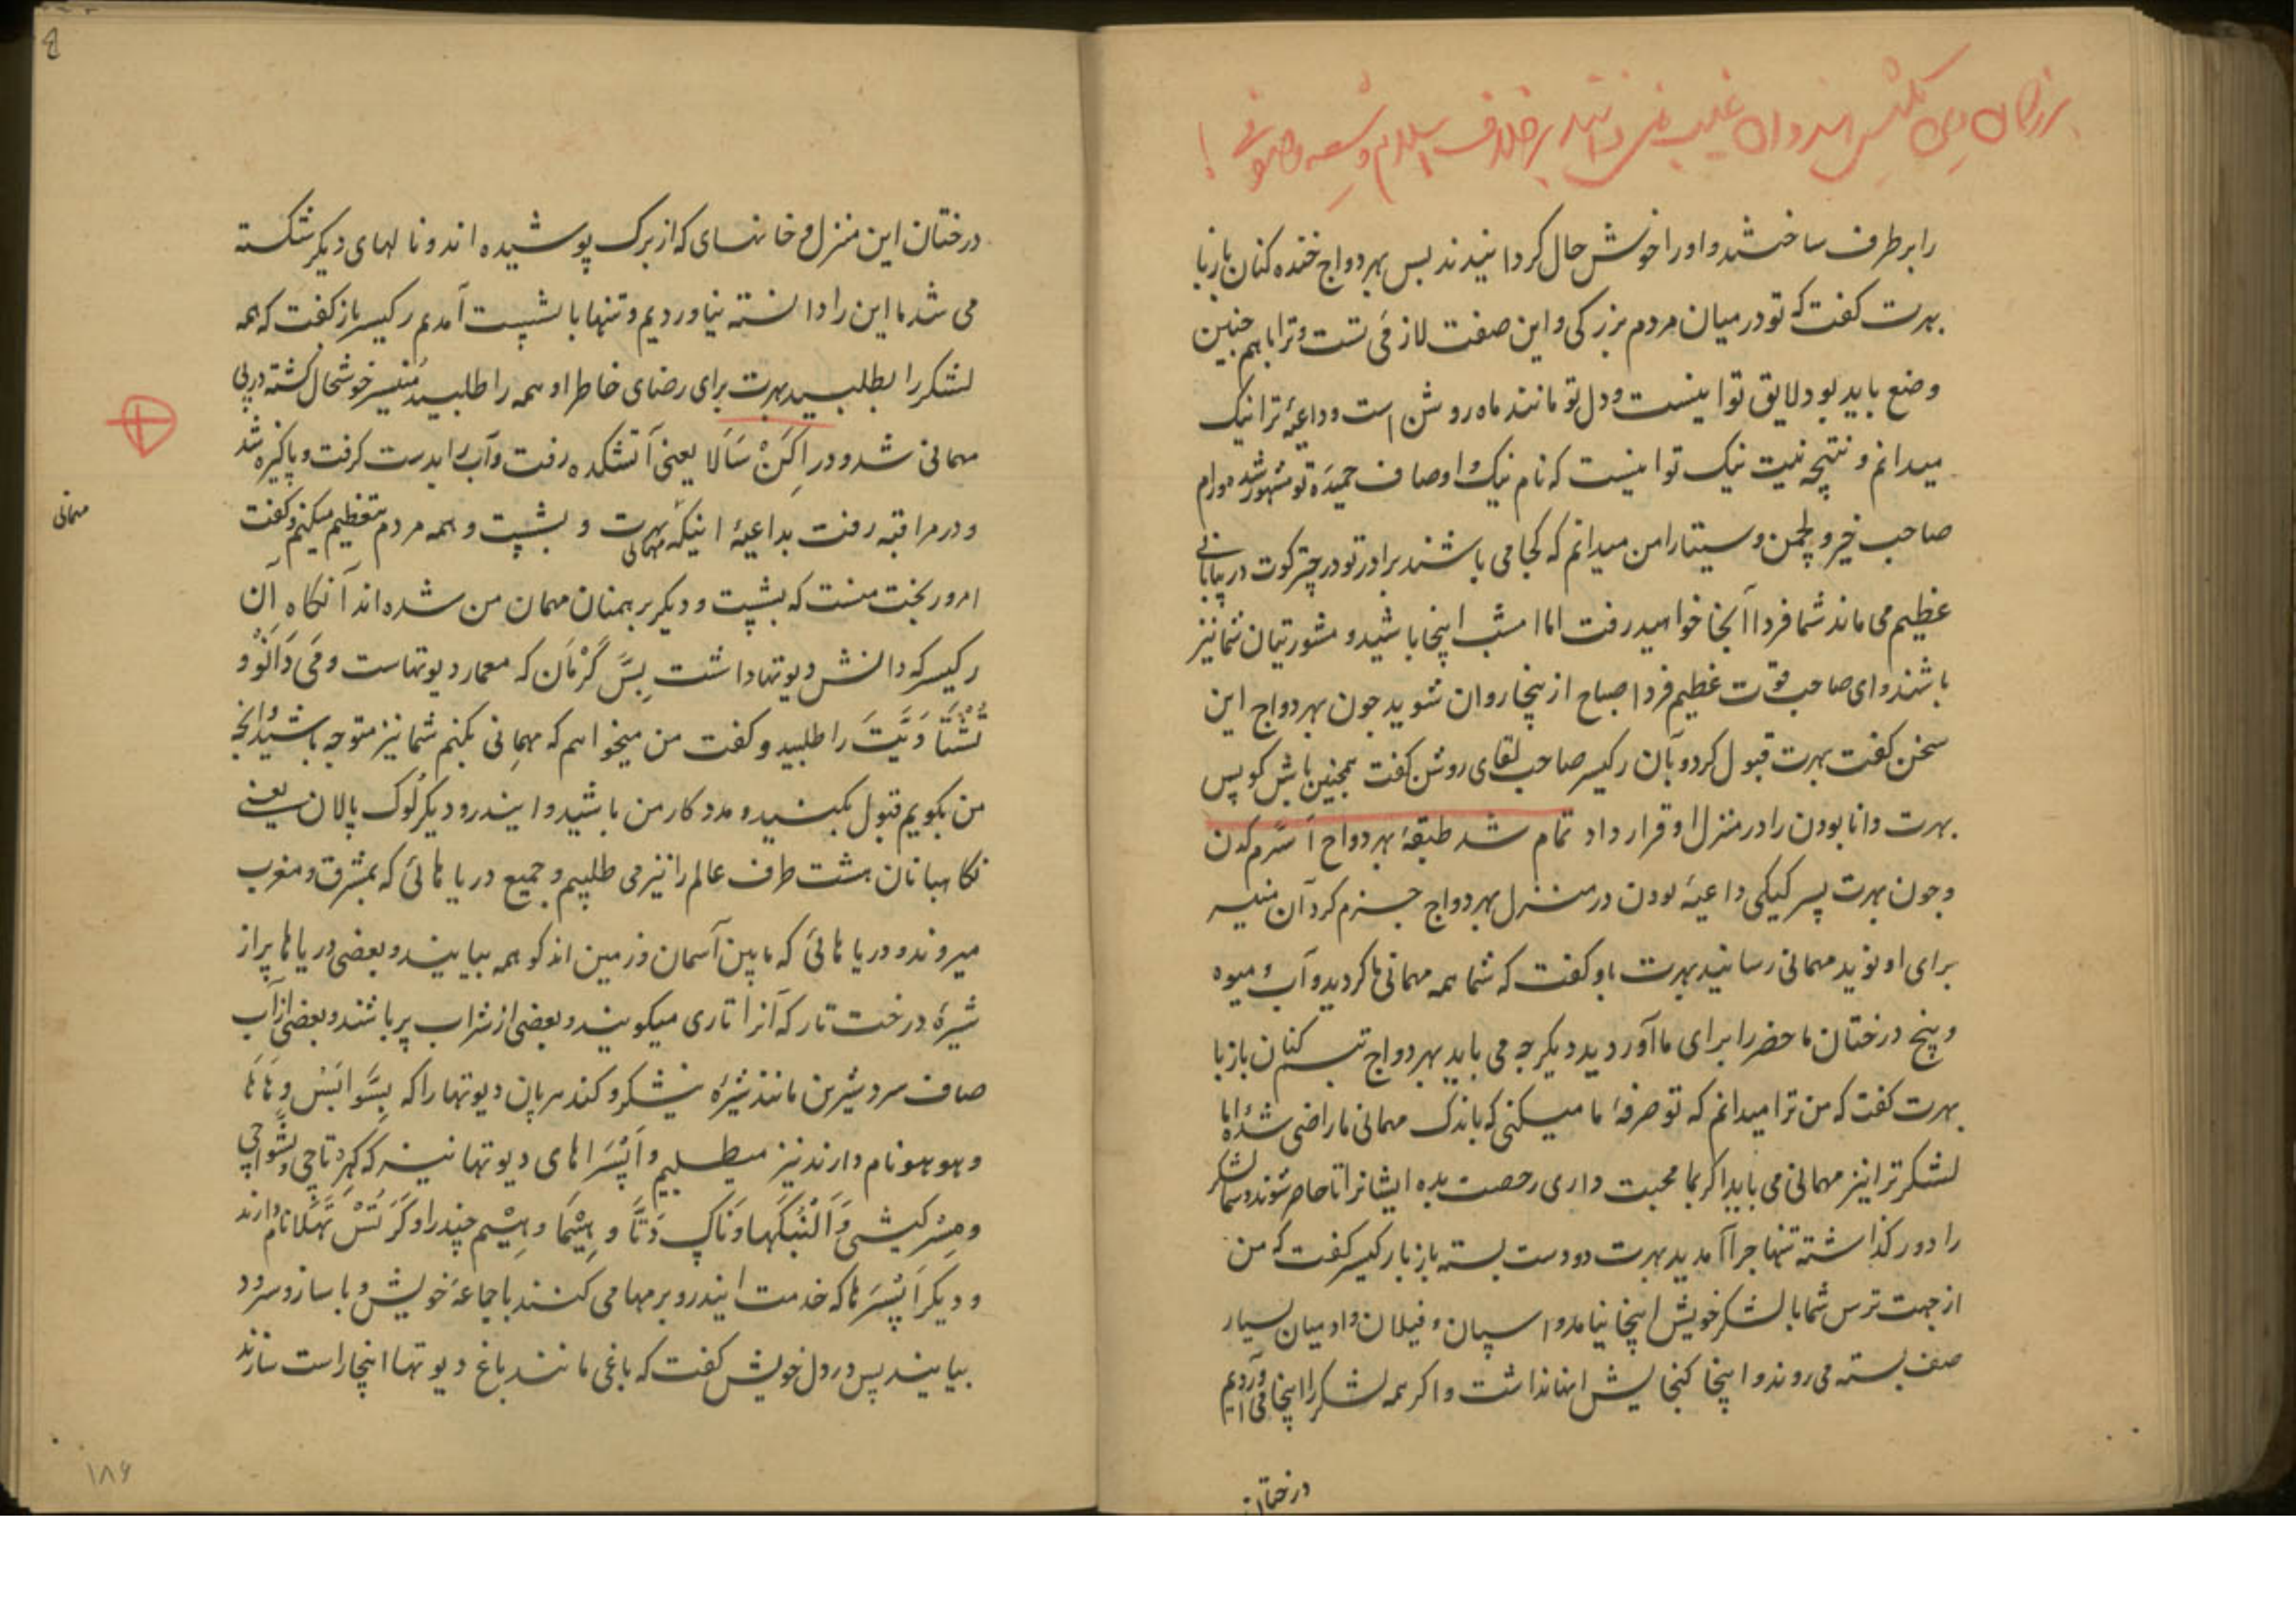 را برطرف ساختند و او را خوش حال کردانیدند بس بهردواج خنده کنان باز با
بهرت کفت که تو در میان مردم بزرکی و این صفت لازمی تست و ترا با هم چنین
وضع باید بود و لایق تو اینست و دل تو مانند ماه روشن است و داعیهٔ ترا نیک
میدانم و نتیجه نیت نیک تو اینست که نام نیک و اوصاف حمیدهٔ تو مشهور شد و رام
صاحب خیر و لچمن و سیتا را من میدانم که کجا می باشند برادر تو در چترکوت در بیابانی
عظیم می ماند شما فردا آنجا خواهید رفت اما امشب اینجا باشید و مشورتیان شما نیز
باشند و ای صاحب قوت عظیم فردا صباح از ینجا روان شوید جون بهردواج این
سخن کفت بهرت قبول کرد و بآن رکیسر صاحب لقای روشن کفت همچنین باش کو پس
بهرت دانا بودن را در منزل او قرار داد تمام شد طبقهٔ بهردواج آسرم کدن
و جون بهرت پسر کیکی داعیهٔ بودن در منزل بهردواج جزم کرد آن منیسر
برای او نوید مهمانی رسانید بهرت باو کفت که شما همه مهمانی ها کردید و آب و میوه
و پنج درختان ما حضر را برای ما آوردید دیکر جه می باید بهردواج تبسم کنان باز با
بهرت کفت که من ترا میدانم که تو صرفهٔ ما میکنی که باندک مهمانی ما راضی شدهٔ اما
لشکر ترا نیز مهمانی می باید اکر بما محبت داری رخصت بده ایشانرا تا حاضر شوند و شما لشکر
را دور کذاشته تنها جرا آمدید بهرت دو دست بسته باز با رکیسر کفت که من
از جهت ترس شما با لشکر خویش اینجا نیامدم و اسپان و فیلان و ادمیان بسیار
صف بسته می روند و اینجا کنجایش اینها نداشت و اکر همه لشکر را اینجا می آوردیم
درختان
درختان این منزل و خانهای که از برک پوشیده اند و نالهای دیکر شکسته
می شد ما این را دانسته نیاوردیم و تنها با بشپست آمدم رکیسر باز کفت که همه
لشکر را بطلبید بهرت برای رضای خاطر او همه را طلبید منیسر خوشحال کشته در پی
مهمانی شد و در اکن سالا یعنی آتشکده رفت و آب را بدست کرفت و پاکیزه شد
و در مراقبه رفت بداعیهٔ اینکه مهمانی بهرت و بشپت و همه مردم بتعظیم میکنم و کفت
مهمانی
امروز بخت منست که بشپت و دیکر برهمنان مهمان من شده اند آنکاه آن
رکیسر که دانش دیوتها داشت بس کرمان که معمار دیوتهاست و می دانو و
تشتا دیت را طلبید و کفت من میخواهم که مهمانی بکنم شما نیز متوجه باشید و آنچه
من بکویم قبول بکنید و مددکار من باشید و ایندر و دیکر لوک پالان یعنی
نکاهبانان هشت طرف عالم را نیز می طلبیم و جمیع دریا هائی که بمشرق و مغرب
میروند و دریا هائی که مابین آسمان و زمین اند کو همه بیایند و بعضی دریاها پر از
شیرهٔ درخت تار که آنرا تاری میکویند و بعضی از شراب پر باشند و بعضی از آب
صاف سرد شیرین مانند شیرهٔ نیشکر و کندهربان دیوتها را که بسوابس و هاها
و هوهو نام دارند نیز میطلبیم و اپسراهای دیوتها نیز که کهرتاچی و بشواچی
و مسرکیشی و النبکها و ناک دتا و هیما و هیم چندرا و کرتس تهلا نام دارند
و دیکر اپسرها که خدمت ایندر و برمها می کنند با جماعهٔ خویش و با ساز و سرود
بیایند پس در دل خویش کفت که باغی مانند باغ دیوتها اینجا راست سازند
۱۸۶